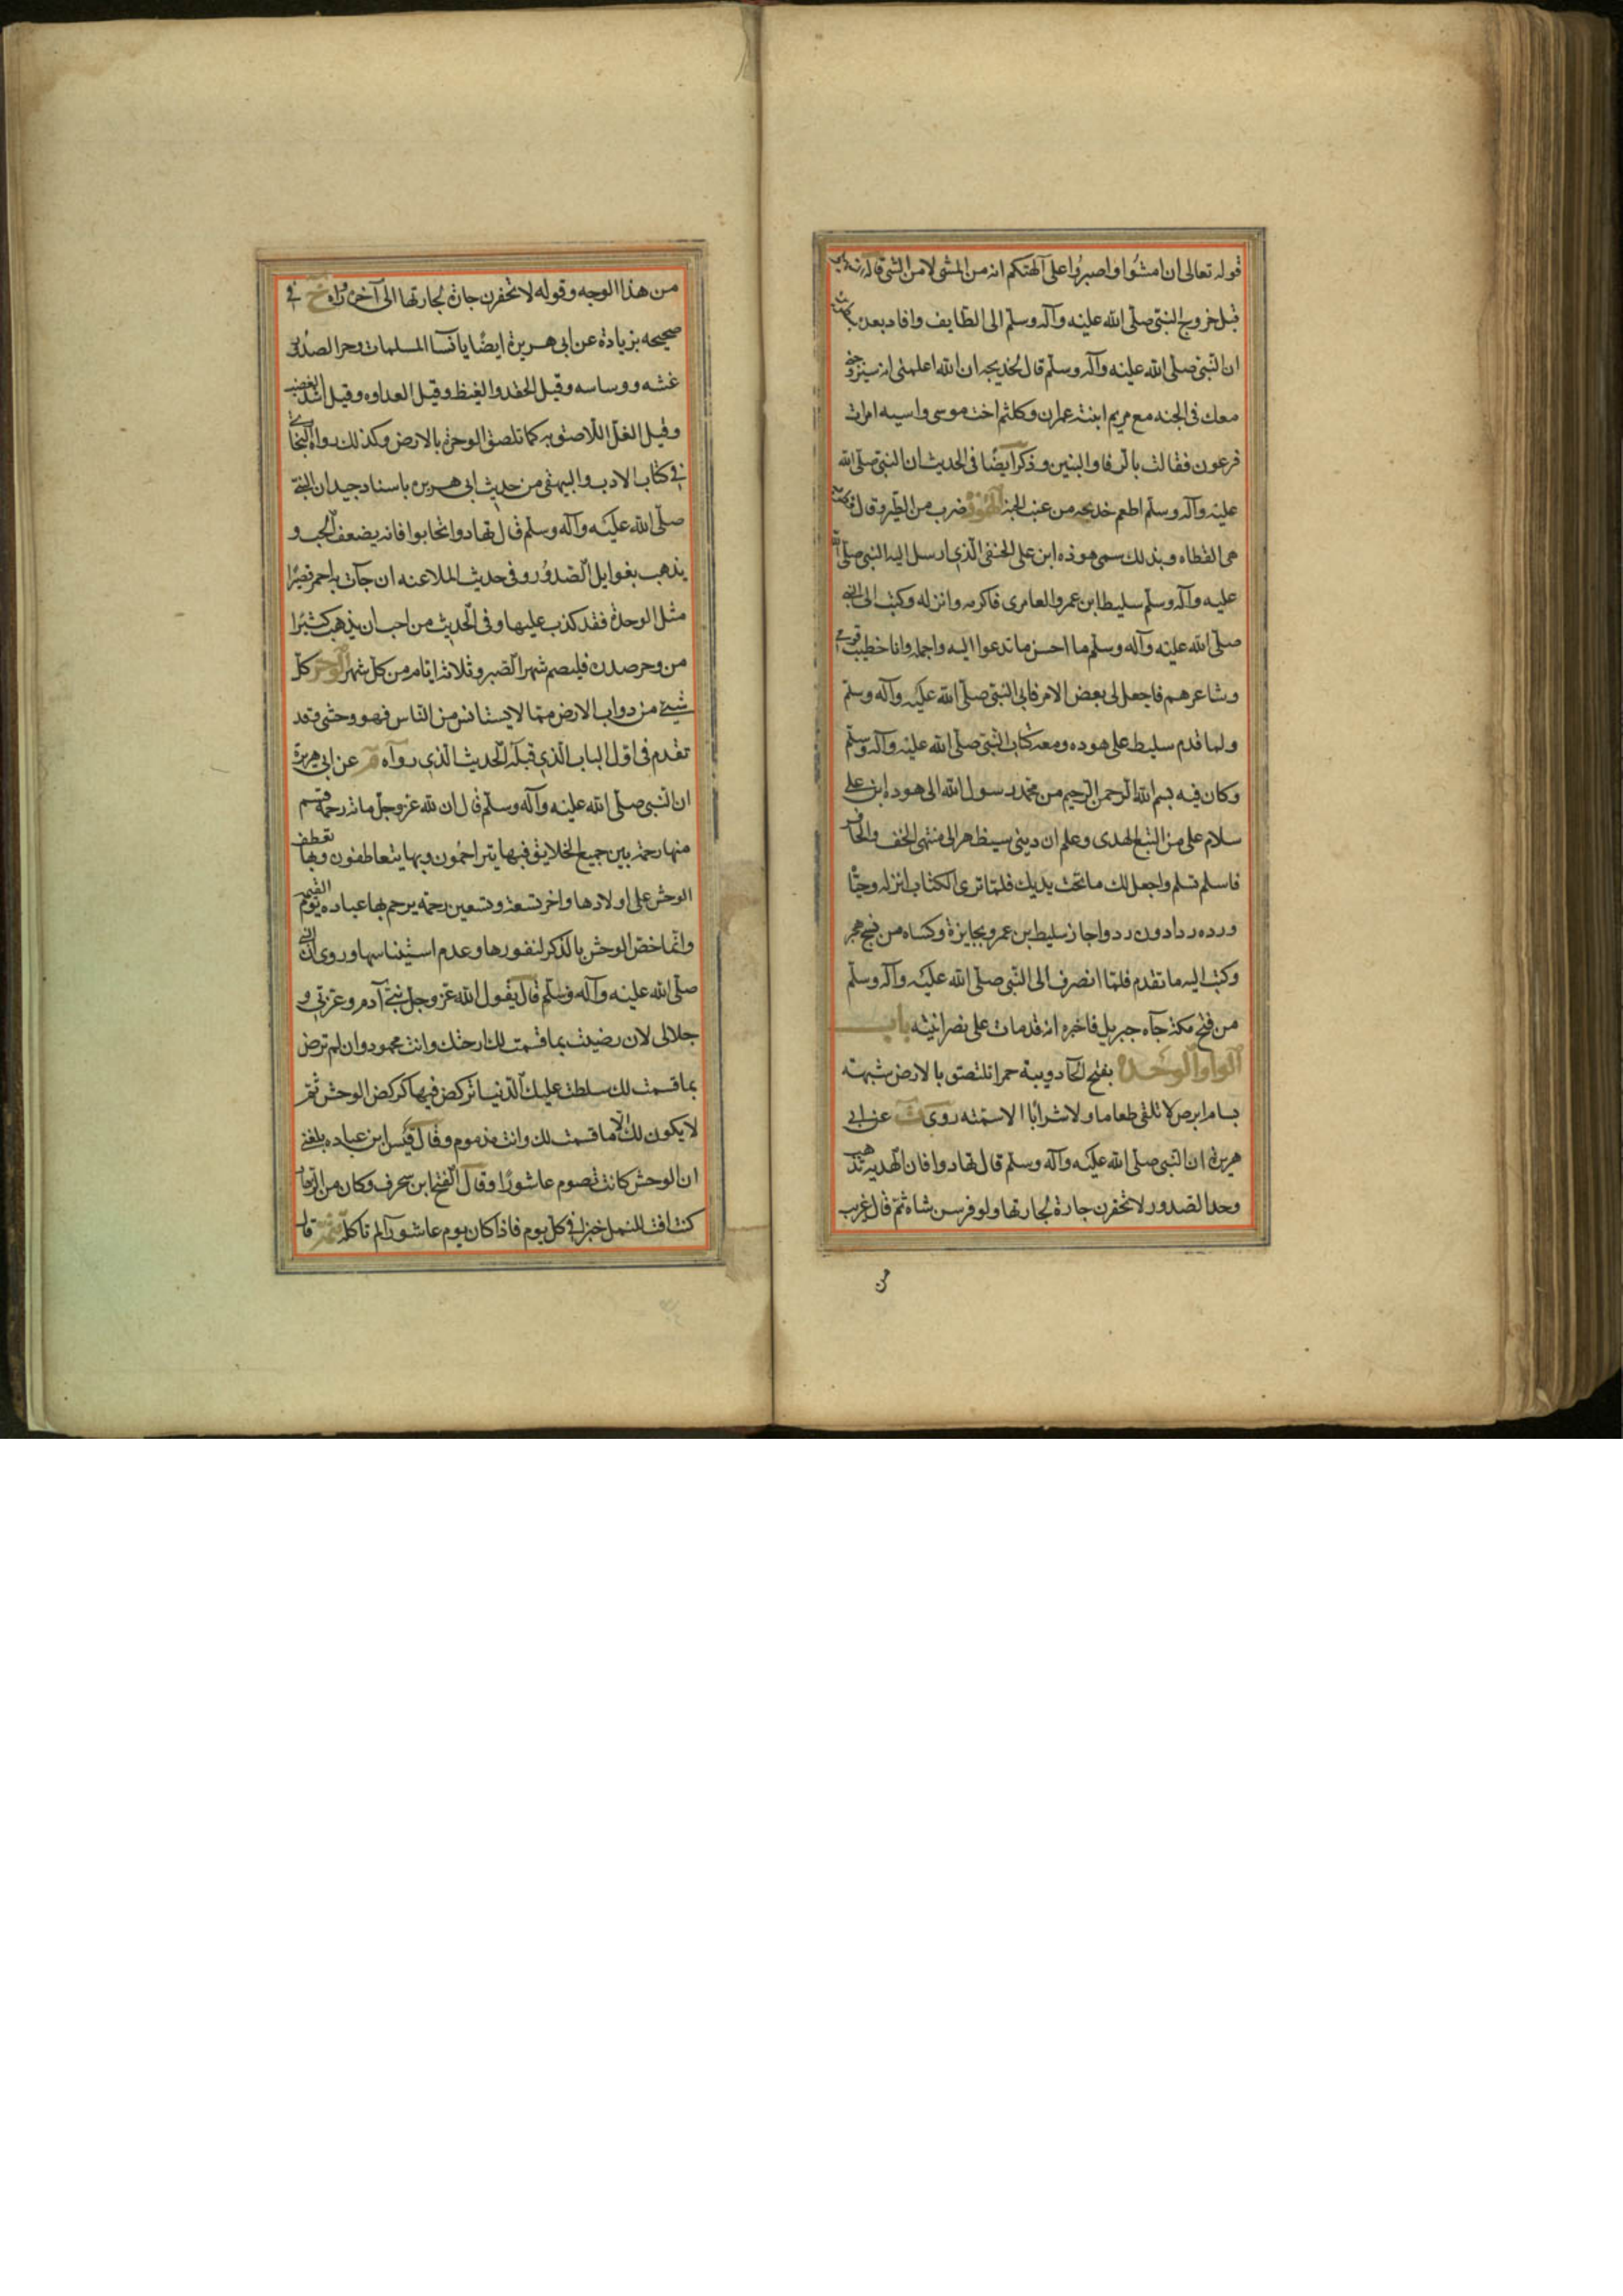 قوله تعالى ان امشوا واصبروا على آلهتكم انه من المشى لا من الشى قال
قبل خروج النبى صلى الله عليه وآله وسلم الى الطايف وافاد بعده
ان النبى صلى الله عليه وآله وسلم قال لخديجه ان الله اعلمنى انه سيزوجنى
معك فى الجنه مع مريم ابنت عمران وكلثم اخت موسى واسيه امرات
فرعون فقالت بالرفا والبنين وذكر ايضا فى الحديث ان النبى صلى الله
عليه وآله وسلم اطعم خديجه من عنب الجنه الهوذة ضرب من الطير وقال
هى القطاه وبذلك سمى هوذه ابن على الحنفى الذى ارسل اليه النبى صلى الله
عليه وآله وسلم سليط ابن عمرو العامرى فاكرمه وانزله وكتب الى النبى
صلى الله عليه وآله وسلم ما احسن ما تدعوا اليه واجمله وانا خطيب قومى
وشاعرهم فاجعل لى بعض الامر فابى النبى صلى الله عليه وآله وسلم
ولما قدم سليط على هوده ومعه كتاب النبى صلى الله عليه وآله وسلم
وكان فيه بسم الله الرحمن الرحيم من محمد رسول الله الى هوده ابن على
سلام على من اتبع الهدى وعلم ان دينى سيظهر الى منتهى الخف والحافر
فاسلم تسلم واجعل لك ما تحت يديك فلما ترى الكتاب انزله وحيا
ورده ردا دون رد واجاز سليط بن عمرو بجايزة وكساه من نسج هجر
وكتب اليه ما تقدم فلما انصرف الى النبى صلى الله عليه وآله وسلم
من فتح مكة جآه جبريل فاخبره انه قد مات على نصرانيته باب
الواو الوحده بفتح الحآ دويبة حمرا تلتصق بالارض شبهته
بسام ابرص لا تلقى طعاما ولا شرابا الا سمته روى ت عن ابى
هريرة ان النبى صلى الله عليه وآله وسلم قال تهادوا فان الهدية تذهب
وحد الصدور لا تحقرن جارة لجارتها ولو فرسن شاة ثم قال غريب
من
من هذا الوجه وقوله لا تحقرن جارة لجارتها الى آخره رواه خ فى
صحيحه بزيادة عن ابى هريرة ايضا يا نسا المسلمات وحر الصدر
غشه ووساسه وقيل الحقد والغيظ وقيل العداوه وقيل اشد الغضب
وقيل الغل اللاصق به كما تلصق الوحرة بالارض وكذلك رواه البخارى
فى كتاب الادب والبيهقى من حديث ابى هريره باسناد جيد ان النبى
صلى الله عليه وآله وسلم قال تهادوا تحابوا فانه يضعف الحب و
يذهب بغوايل الصدور وفى حديث الملاعنه ان جآت به احمر قصيرا
مثل الوحرة فقد كذب عليها وفى الحديث من احب ان يذهب كثيرا
من وحر صدره فليصم شهر الصبر وثلاثة ايام من كل شهر الوحش كل
شيئ من دواب الارض مما لا يستانس من الناس فهو وحشى وقد
تقدم فى اول الباب الذى قبله الحديث الذى رواه م عن ابى هريرة
ان النبى صلى الله عليه وآله وسلم قال ان لله عز وجل مائة رحمة قسم
منها رحمة بين جميع الخلايق فبها يتراحمون وبها يتعاطفون وبها تعطف
الوحش على اولادها واخر تسعة وتسعين رحمة يرحم بها عباده يوم القيمه
وانما خص الوحش بالذكر لنفورها وعدم استيناسها وروى ان النبى
صلى الله عليه وآله وسلم قال يقول الله عز وجل بنى آدم وعزتى و
جلالى لان رضيت بما قسمت لك ارحتك وانت محمود وان لم ترض
بما قسمت لك سلطت عليك الدنيا تركض فيها كركض الوحش ثم
لا يكون لك الا ما قسمت لك وانت مذموم وقال قيس ابن عباده بلغنى
ان الوحش كانت تصوم عاشورا وقال الفتح ابن سحرف وكان من الزهاد
كنت افت للنمل خبزا فى كل يوم فاذا كان يوم عاشورآ لم تاكله قال